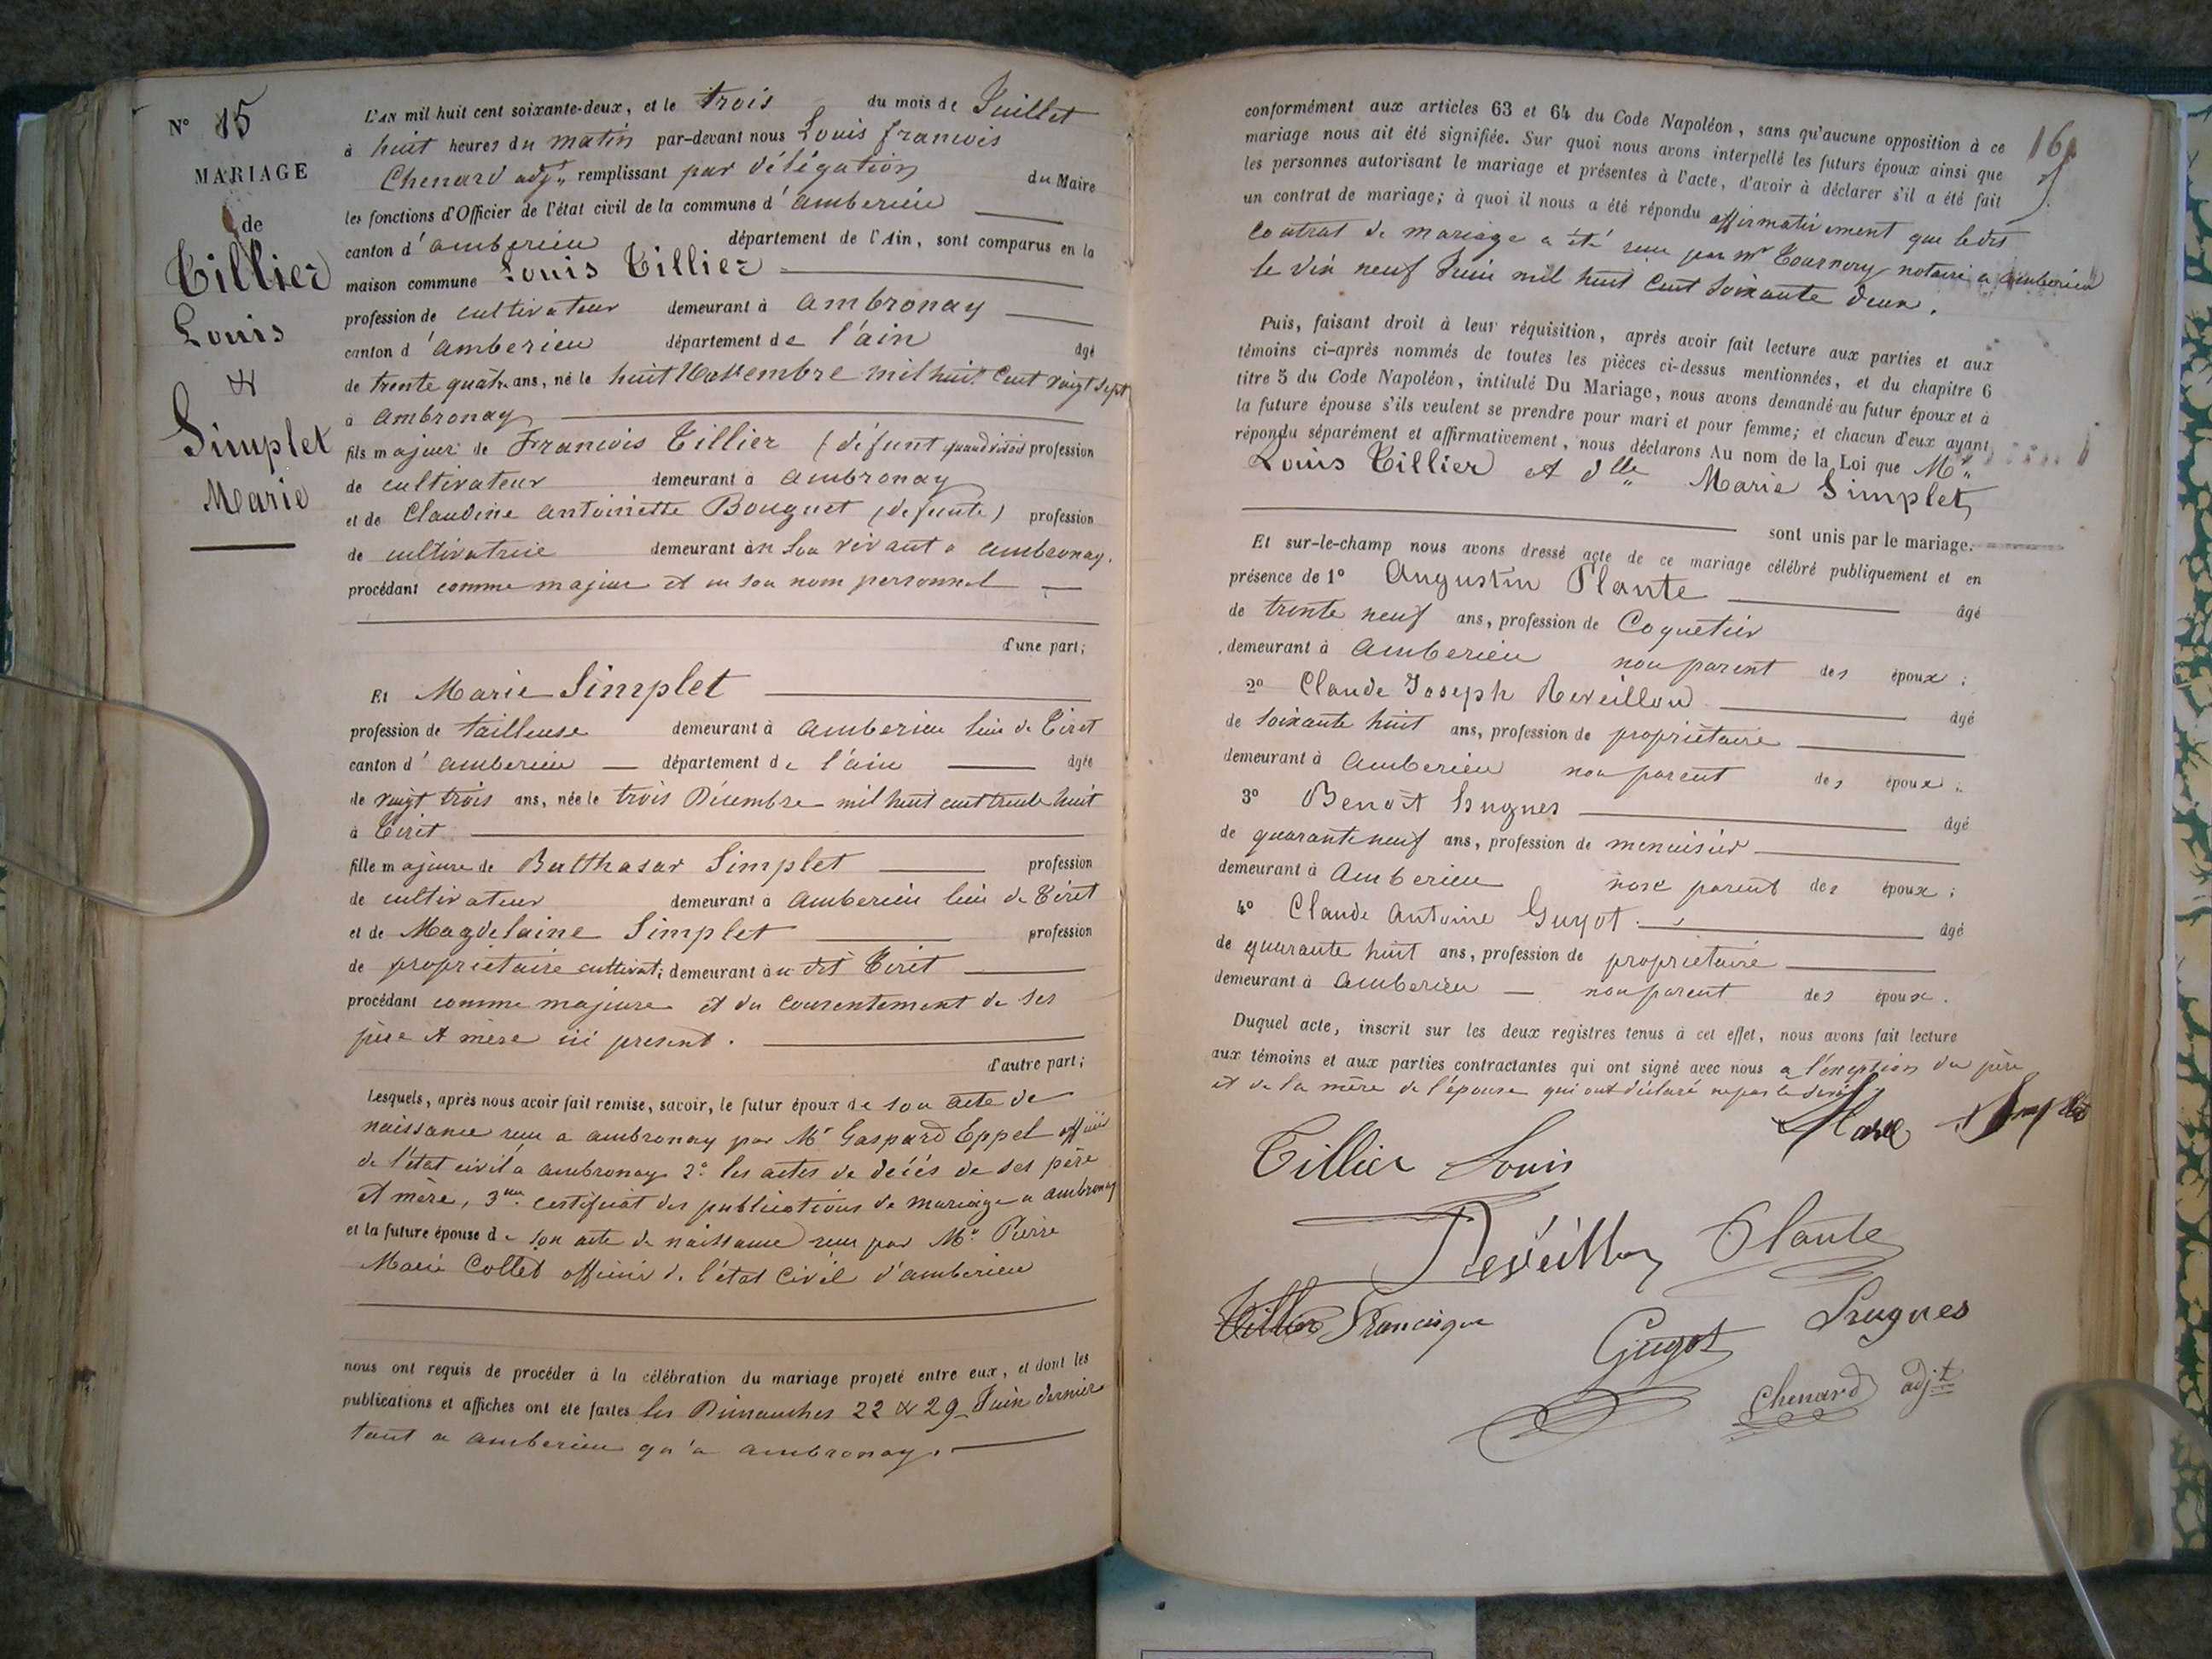 N° 15
MARIAGE
de
Tillier
Louis
&
Simplet
Marie
L'AN mil huit cent soixante-deux, et le trois du mois de Juillet
à huit heures du matin par-devant nous Louis francois
Chenard adjt. remplissant par délégation du Maire
les fonctions d'Officier de l'état civil de la commune d'amberieu
canton d'amberieu département de l'Ain, sont comparus en la
maison commune Louis Tillier
profession de cultivateur demeurant à ambronay
canton d'amberieu département de l'ain âgé
de trente quatre ans, né le huit Novembre mil huit cent vingt sept
à ambronay
fils majeur de Francois Tillier (défunt quand vivait profession
de cultivateur demeurant à ambronay
et de Claudine antoinette Bouguet (defunte) profession
de cultivatrice demeurant en son vivant a ambronay.
procédant comme majeur et en son nom personnel
d'une part;
Et Marie Simplet
profession de tailleuse demeurant à amberieu lieu de Tiret
canton d'amberieu département de l'ain âgée
de vingt trois ans, née le trois Décembre mil huit cent trente huit
à Tiret
fille majeure de Balthasar Simplet profession
de cultivateur demeurant à amberieu lieu de Tiret
et de Magdelaine Simplet profession
de propriétaire cultivat: demeurant au dit Tiret
procédant comme majeure et du consentement de ses
père et mere ici present.
d'autre part;
Lesquels, après nous avoir fait remise, savoir, le futur époux de son acte de
naissance recu a ambronay par Mr Gaspard Eppel officier
de l'état civil a ambronay 2° les actes de décés de ses père
et mère, 3me certificat des publications de mariage a ambronay
et la future épouse de son acte de naissance recu par Mr Pierre
Marie Collet officier de l'état civil d'amberieu
nous ont requis de procéder à la célébration du mariage projeté entre eux, et dont les
publications et affiches ont été faites les Dimanches 22 & 29 Juin dernier
tant a amberieu qu'a ambronay.
161
conformément aux articles 63 et 64 du Code Napoléon, sans qu'aucune opposition à ce
mariage nous ait été signifiée. Sur quoi nous avons interpellé les futurs époux ainsi que
les personnes autorisant le mariage et présentes à l'acte, d'avoir à déclarer s'il a été fait
un contrat de mariage; à quoi il nous a été répondu affirmativement que ledit
contrat de mariage a été recu par mr Tournery notaire a amberieu
le vin neuf Juin mil huit cent soixante deux.
Puis, faisant droit à leur réquisition, après avoir fait lecture aux parties et aux
témoins ci-après nommés de toutes les pièces ci-dessus mentionnées, et du chapitre 6
titre 5 du Code Napoléon, intitulé Du Mariage, nous avons demandé au futur époux et à
la future épouse s'ils veulent se prendre pour mari et pour femme; et chacun d'eux ayant
répondu séparément et affirmativement, nous déclarons Au nom de la Loi que Mr
Louis Tillier et dlle Marie Simplet
sont unis par le mariage.
Et sur-le-champ nous avons dressé acte de ce mariage célébré publiquement et en
présence de 1° Augustin Plante âgé
de trente neuf ans, profession de Coquetier
demeurant à amberieu non parent des époux;
2° Claude Joseph Reveillon âgé
de soixante huit ans, profession de propriétaire
demeurant à amberieu non parent des époux;
3° Benoît hugnes âgé
de quarante neuf ans, profession de menuisier
demeurant à amberieu non parent des époux;
4° Claude antoine Guyot âgé
de quarante huit ans, profession de propriétaire
demeurant à amberieu non parent des époux.
Duquel acte, inscrit sur les deux registres tenus à cet effet, nous avons fait lecture
aux témoins et aux parties contractantes qui ont signé avec nous a l'exeption du père
et de la mère de l'épouse qui ont déclaré ne pas le savoir
Marie Simplet
Tillier Louis
Reveillon Plante
Tillier Francisque
Guyot
Chenard adjt